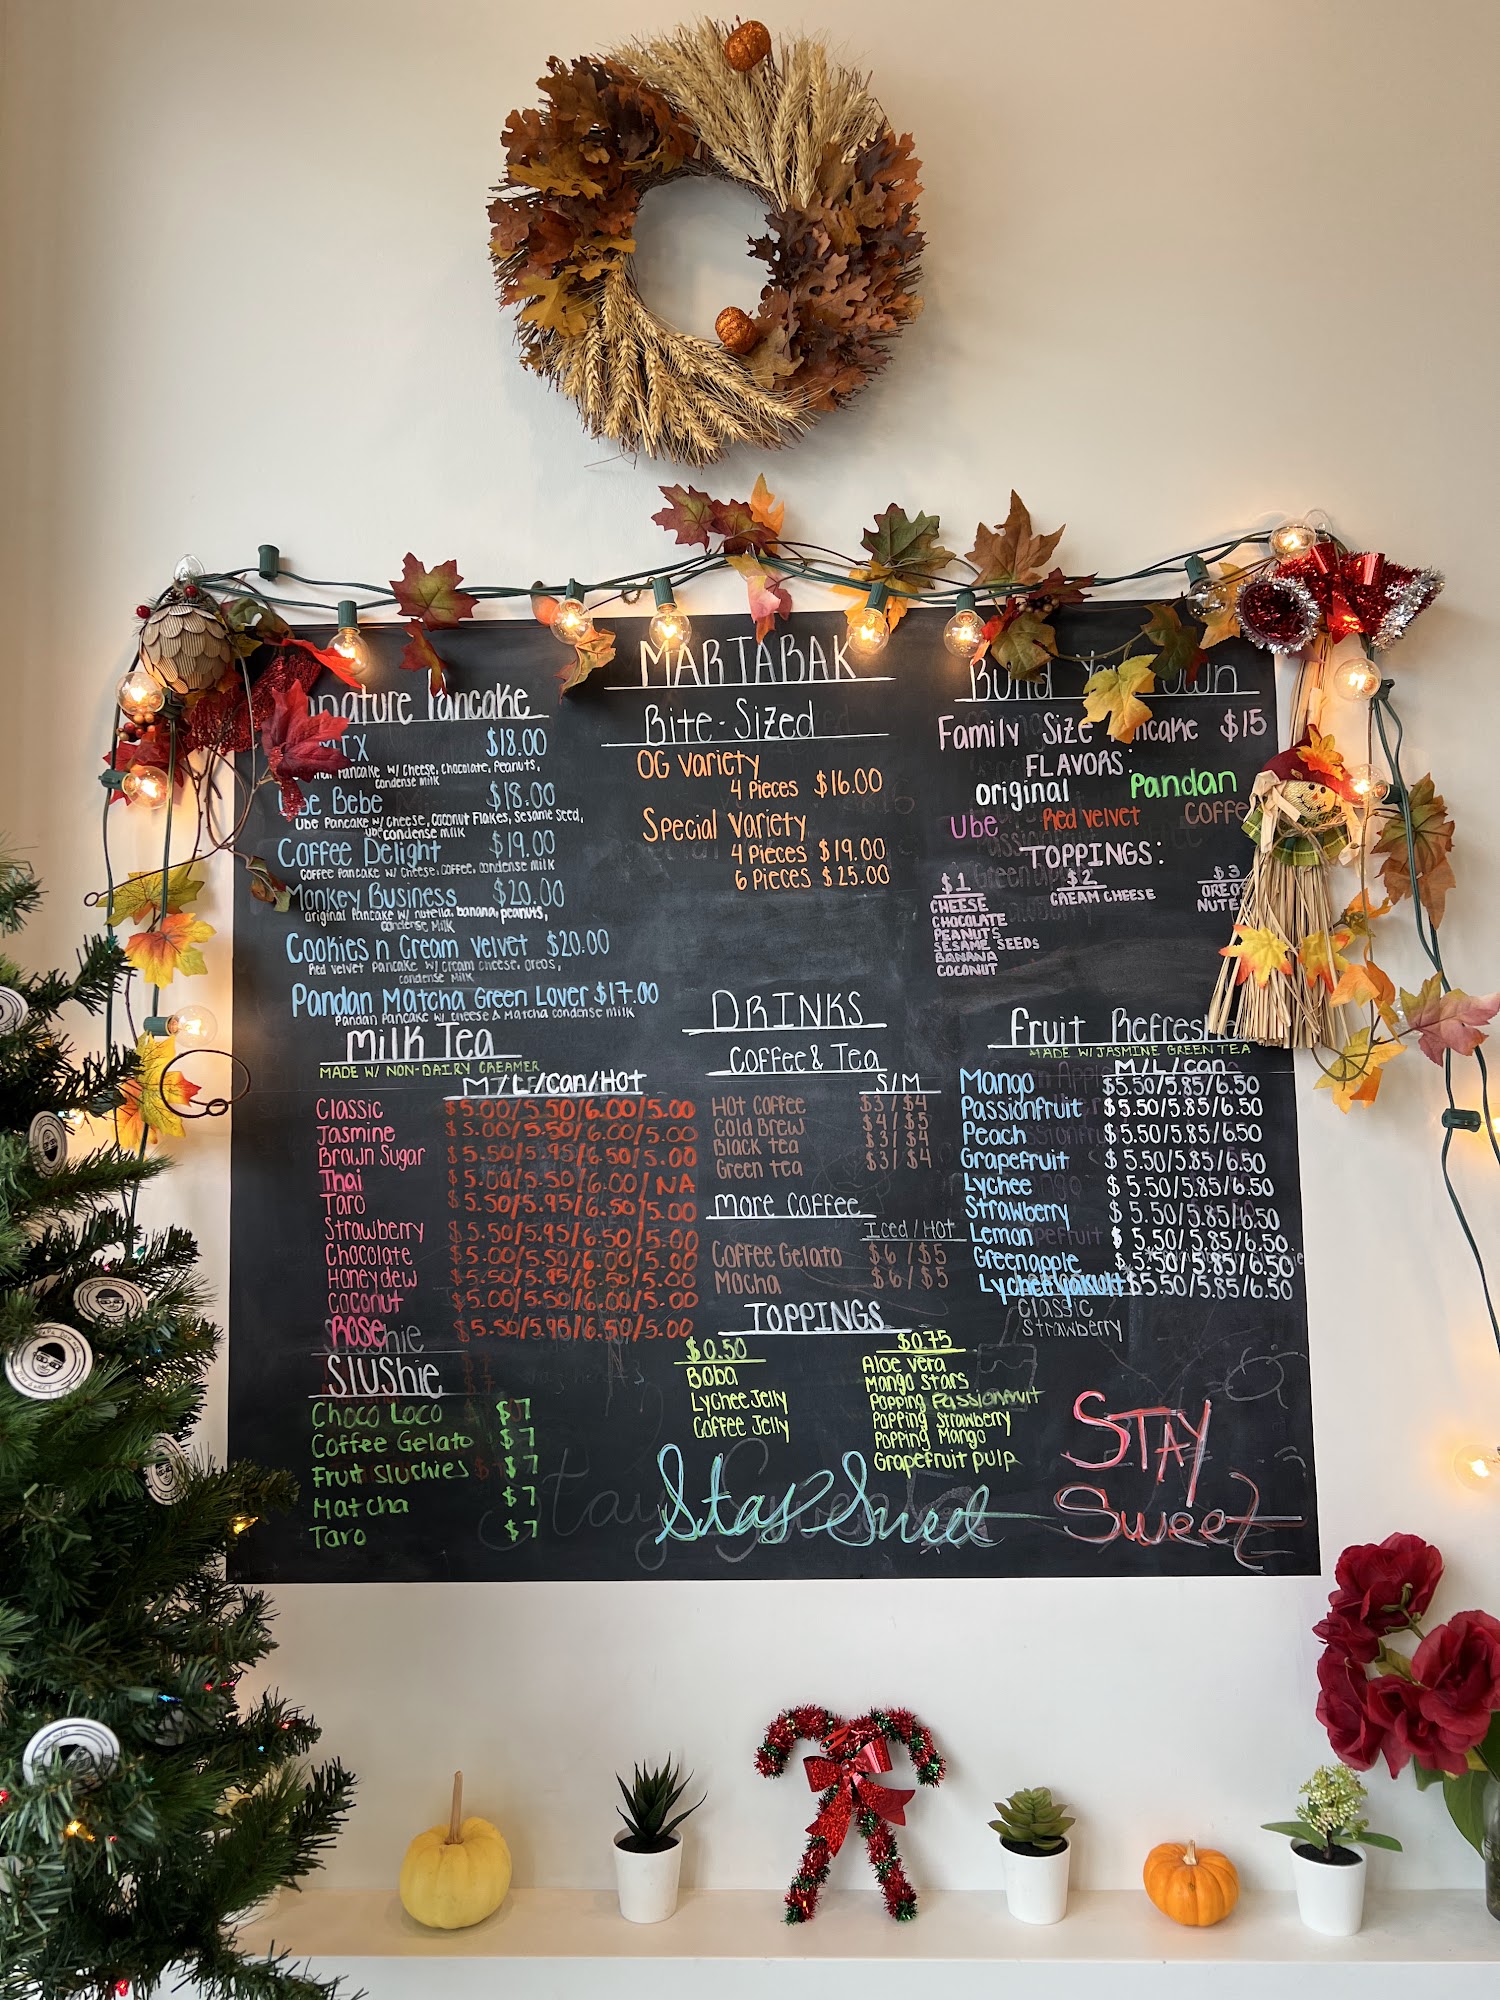 MARTABAK
Signature Pancake
MIX $18.00
Pancake w/ Cheese, Chocolate, Peanuts,
condense milk
Ube Bebe $18.00
Ube Pancake w/ Cheese, Coconut Flakes, Sesame Seed,
ube condense milk
Coffee Delight $19.00
Coffee Pancake w/ Cheese, Coffee, condense milk
Monkey Business $20.00
Original Pancake w/ nutella, banana, peanuts,
condense milk
Cookies n Cream Velvet $20.00
Red velvet Pancake w/ cream cheese, oreos,
condense milk
Pandan Matcha Green Lover $17.00
Pandan Pancake w/ cheese & Matcha condense milk
Bite-Sized
OG Variety
4 Pieces $16.00
Special Variety
4 Pieces $19.00
6 Pieces $25.00
Build Your Own
Family Size Pancake $15
FLAVORS:
Original Pandan
Ube Red Velvet Coffe
TOPPINGS:
$1 $2 $3
CHEESE CREAM CHEESE OREOS
CHOCOLATE NUTE
PEANUTS
SESAME SEEDS
BANANA
COCONUT
Milk Tea
MADE W/ NON-DAIRY CREAMER
M/L/Can/Hot
Classic $5.00/5.50/6.00/5.00
Jasmine $5.00/5.50/6.00/5.00
Brown Sugar $5.50/5.95/6.50/5.00
Thai $5.00/5.50/6.00/NA
Taro $5.50/5.95/6.50/5.00
Strawberry $5.50/5.95/6.50/5.00
Chocolate $5.00/5.50/6.00/5.00
Honeydew $5.50/5.95/6.50/5.00
Coconut $5.00/5.50/6.00/5.00
Rose $5.50/5.95/6.50/5.00
Slushie
Choco Loco $7
Coffee Gelato $7
Fruit Slushies $7
Matcha $7
Taro $7
DRINKS
Coffee & Tea
S/M
Hot Coffee $3/$4
Cold Brew $4/$5
Black tea $3/$4
Green tea $3/$4
More Coffee
Iced/Hot
Coffee Gelato $6/$5
Mocha $6/$5
TOPPINGS
$0.50 $0.75
Boba Aloe vera
Lychee Jelly Mango Stars
Coffee Jelly Popping Passionfruit
Popping Strawberry
Popping Mango
Grapefruit pulp
Fruit Refreshe
MADE W/ JASMINE GREEN TEA
M/L/Can
Mango $5.50/5.85/6.50
Passionfruit $5.50/5.85/6.50
Peach $5.50/5.85/6.50
Grapefruit $5.50/5.85/6.50
Lychee $5.50/5.85/6.50
Strawberry $5.50/5.85/6.50
Lemon $5.50/5.85/6.50
Greenapple $5.50/5.85/6.50
Lychee Yakult $5.50/5.85/6.50
Classic
Strawberry
Stay Sweet
STAY
Sweet